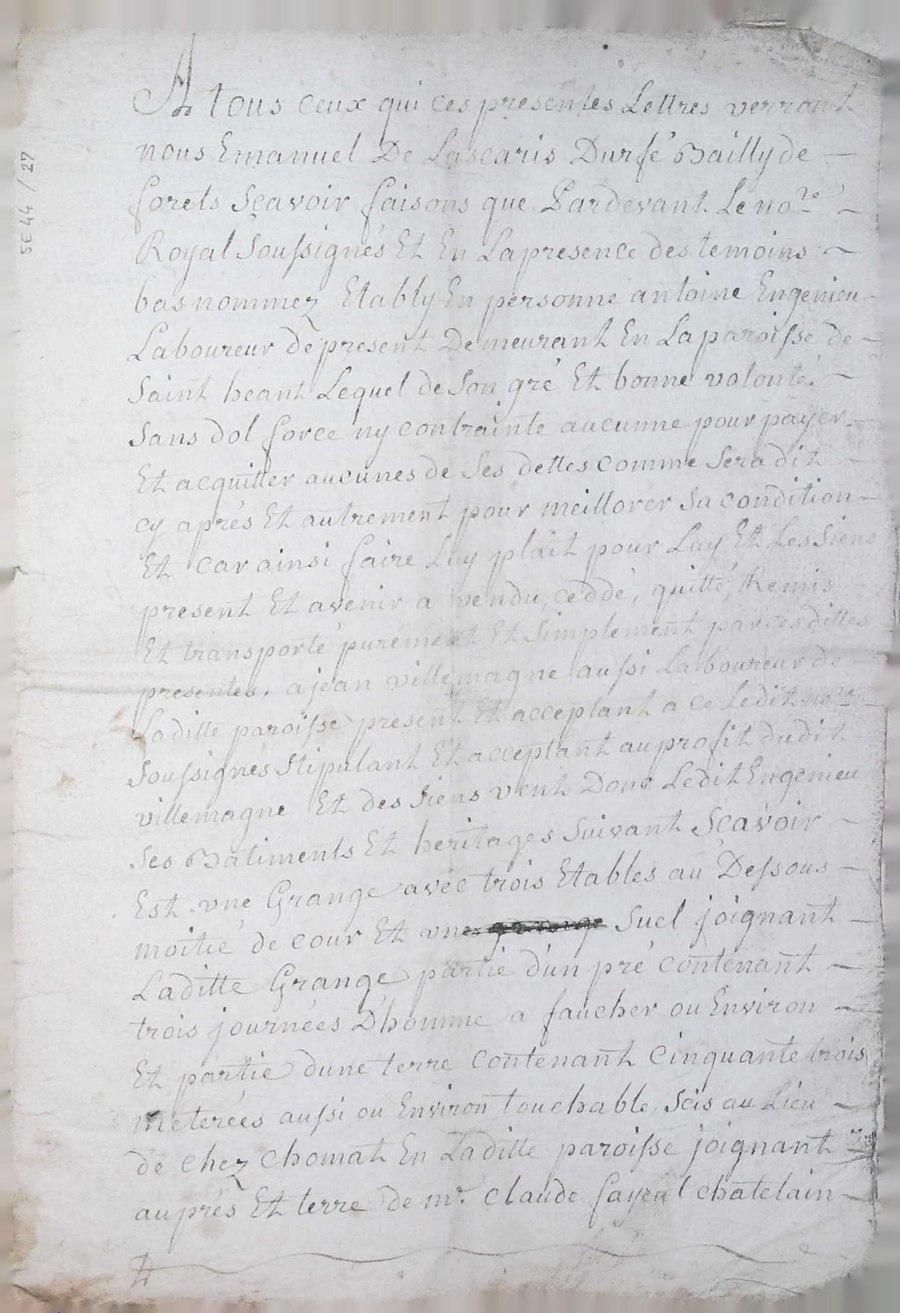 A tous ceux qui ces presentes Lettres verront
nous Emanuel De Lascaris Durfé Bailly de
forets Scavoir faisons que Pardevant Le no.re
Royal Soussignés Et En La presence des temoins
bas nommez Etably En personne antoine Engenieu
Laboureur de present Demeurant En La paroisse de
Saint heant Lequel de Son gré Et bonne volonté.
Sans dol force ny contrainte aucunne pour payer
Et acquitter aucunes de Ses dettes comme Sera dit
cy aprés Et autrement pour meillorer Sa condition
Et car ainsi faire Luy plait pour Luy Et Les Siens
present Et avenir a vendu, ceddé, quitté, Remis
Et transporté purement Et Simplement par ces dittes
presentes, a jean villemagne aussi Laboureur de
Laditte paroisse present Et acceptant a ce Ledit no.re
Soussignés Stipulant Et acceptant au profit dudit
villemagne Et des Siens vent Donc Ledit Engenieu
Ses Batiments Et heritages Suivant Scavoir
Est vne Grange avec trois Etables au Dessous
moitié de cour Et vne Suel joignant
Laditte Grange partie dun pré contenant
trois journées D'homme a faucher ou Environ
Et partie dune terre contenant Cinquante trois
meterées aussi ou Environ touchable, Seis au Lieu
de chez Chomat En Laditte paroisse joignant
au prés Et terre de mr. Claude fayeul chatelain
5E44 / 27